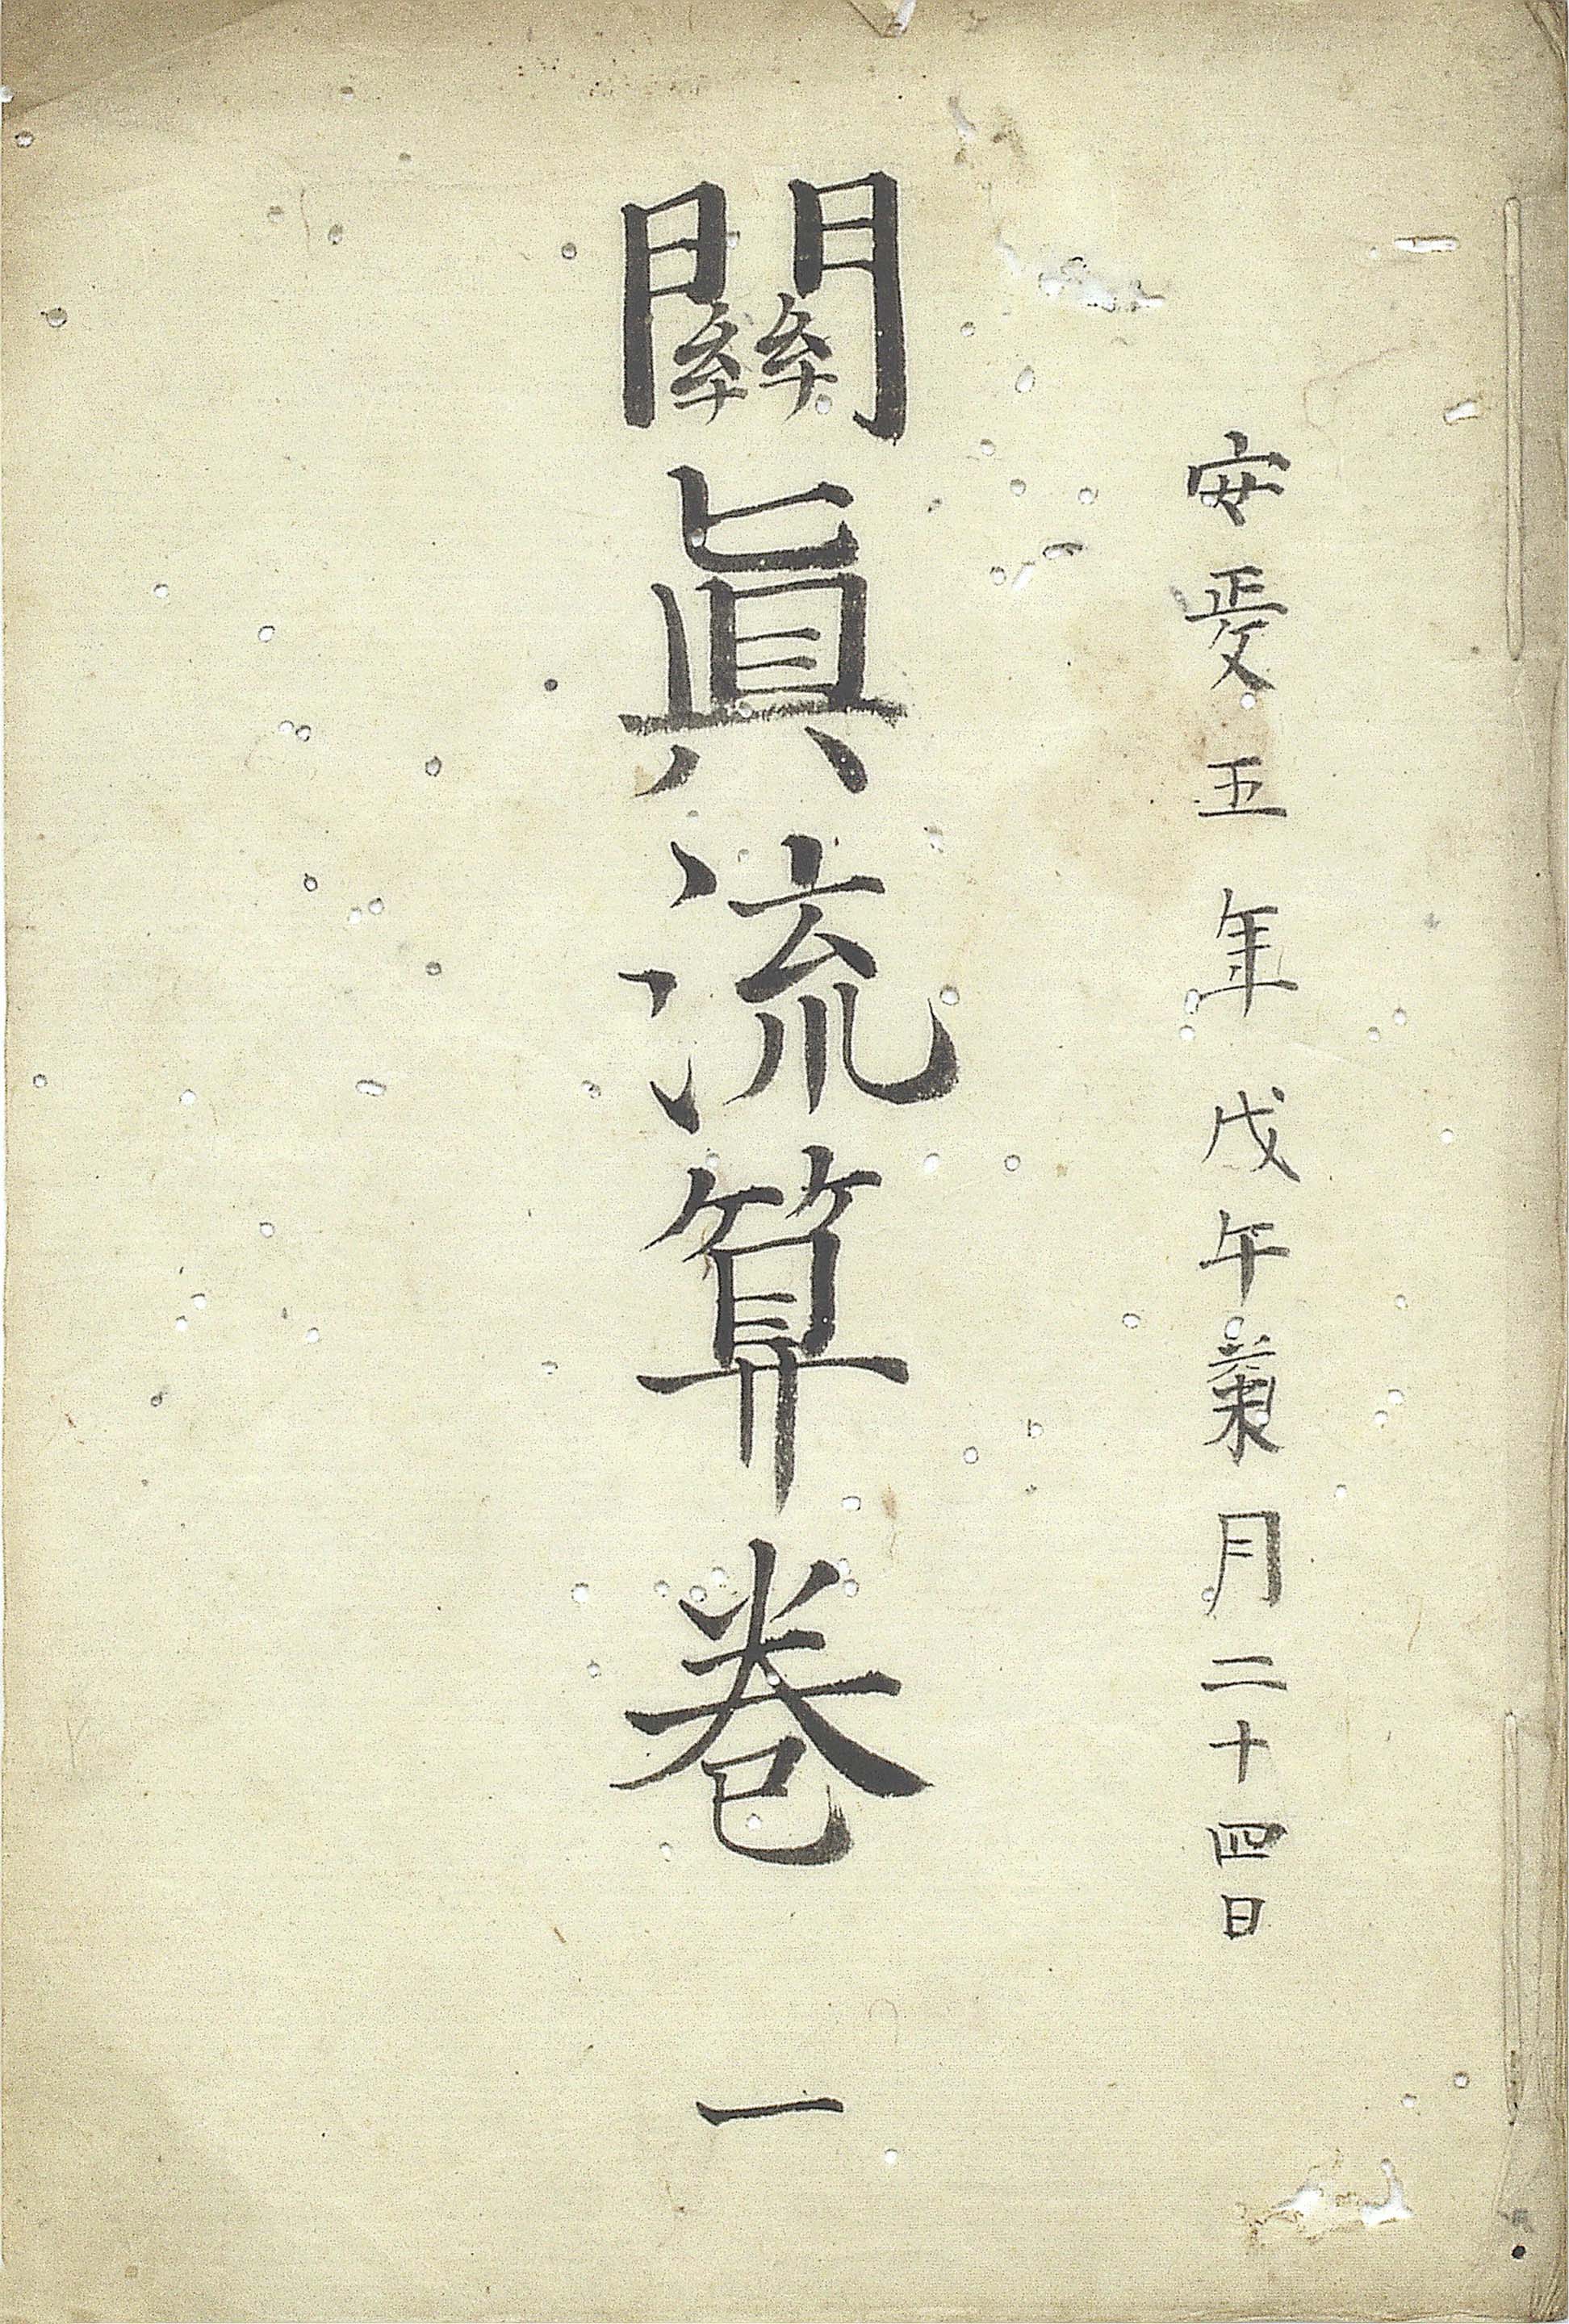 安政五年戊午葉月二十四日
關眞流算巻 一